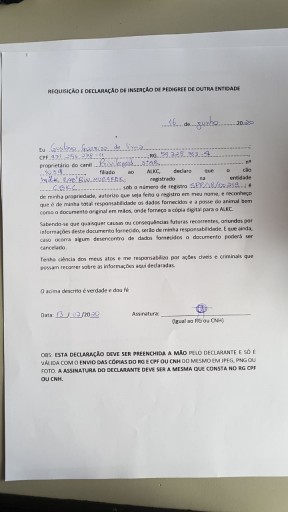 REQUISIÇÃO E DECLARAÇÃO DE INSERÇÃO DE PEDIGREE DE OUTRA ENTIDADE
16 de junho 2020
Eu
CPF RG
proprietário do canil Privileged STAR nº
filiado ao ALKC, declaro que o cão
registrado na entidade
CBKC sob o número de registro é
de minha propriedade, autorizo que seja feito o registro em meu nome, e reconheço
que é de minha total responsabilidade os dados fornecidos e a posse do animal bem
como o documento original em mãos, onde forneço a cópia digital para o ALKC.
Sabendo-se que quaisquer causas ou consequências futuras recorrentes, oriundos por
informações deste documento fornecido, serão de minha responsabilidade. E que ainda,
caso ocorra algum desencontro de dados fornecidos o documento poderá ser
cancelado.
Tenho ciência dos meus atos e me responsabilizo por ações cíveis e criminais que
possam recorrer sobre as informações aqui declaradas.
O acima descrito é verdade e dou fé
Data: Assinatura:
(Igual ao RG ou CNH)
OBS: ESTA DECLARAÇÃO DEVE SER PREENCHIDA A MÃO PELO DECLARANTE E SÓ É
VÁLIDA COM O ENVIO DAS CÓPIAS DO RG E CPF OU CNH DO MESMO EM JPEG, PNG OU
FOTO. A ASSINATURA DO DECLARANTE DEVE SER A MESMA QUE CONSTA NO RG CPF
OU CNH.